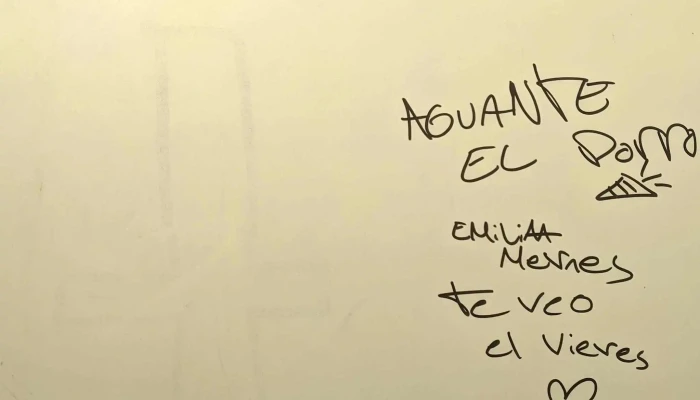 AGUANTE
EL Dorm
EMiLiAA
Mernes
te veo
el vieres